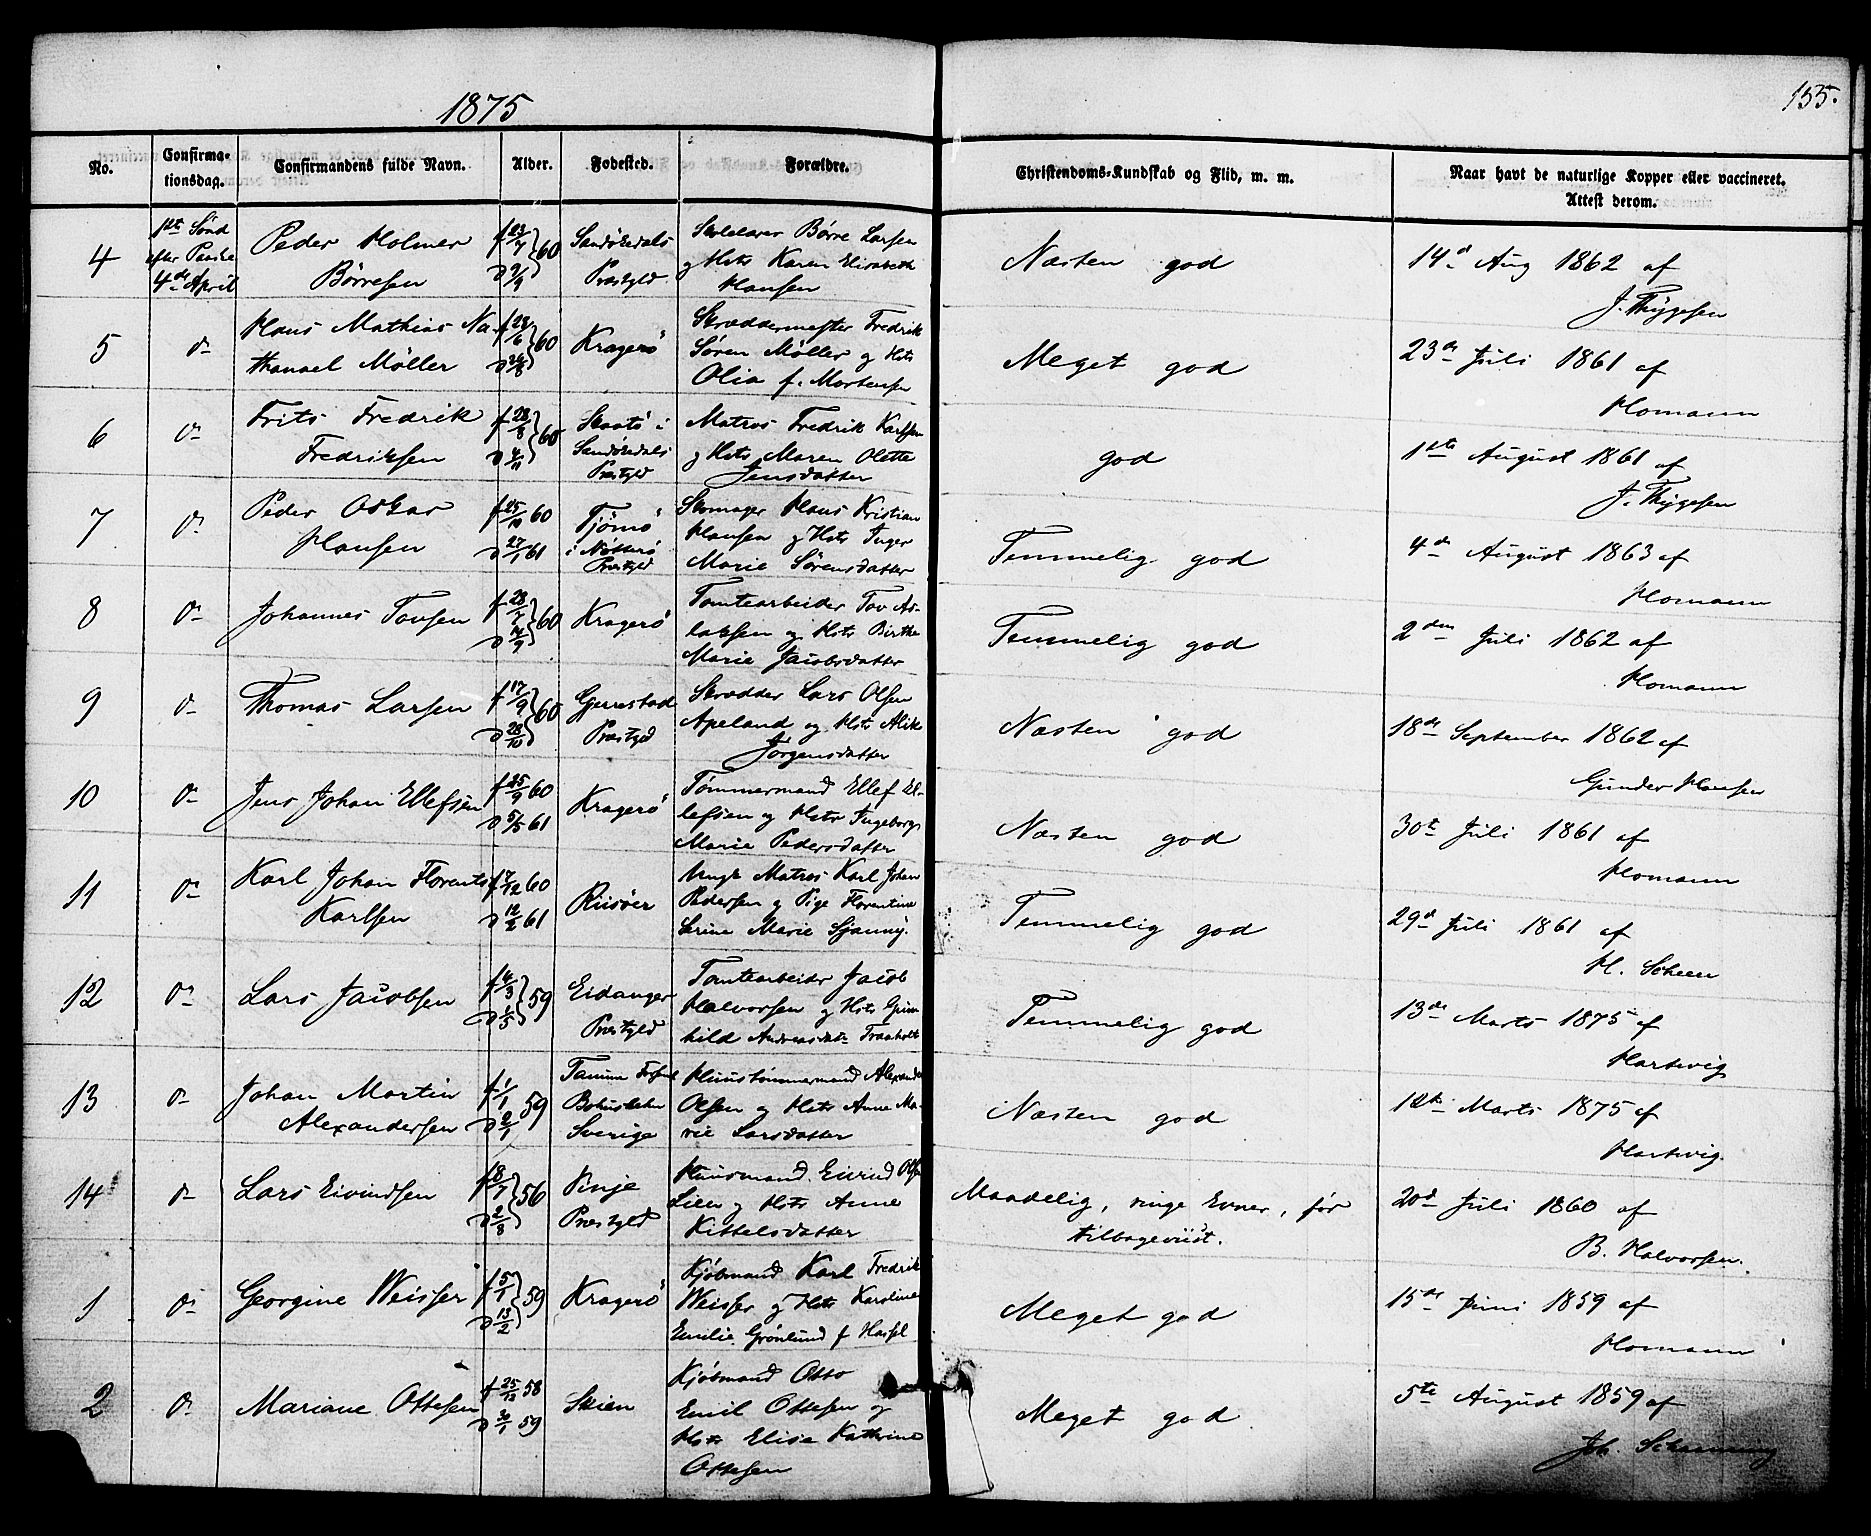 1875
155.
No.
Confirma-
tionsdag.
Confirmandens fulde Navn.
Alder.
Fødested.
Forældre.
Christendoms-Kundskab og Flid, m. m.
Naar havt de naturlige Kopper eller vaccineret.
Attest derom.
4
1ste Sønd
efter Paaske
4de April
Peder Holmer
Børresen
f 23/7 } 60
d 9/9
Sandøkedals
Præstgld.
Børre Larsen
og Hst Karen Elisabeth
Hansen
Næsten god
14d Aug 1862 af
J. Thygesen
5
do
Hans Mathias Na-
thanael Møller
f 28/6 } 60
Kragerø
Skræddermester Fredrik
Søren Møller og Hst
Olia f. Mortensen
Meget god
23de Juli 1861 af
Homann
6
do
Frits Fredrik
Fredriksen
f 28/8 } 60
d 4/11
Skaatø i
Sandøkedals
Præstgld
Matros Fredrik Karlsen
og Hst Maren Olette
Jensdatter
god
1ste August 1861 af
J. Thygesen
7
do
Peder Oskar
Hansen
f 25/10 60
d 27/1 61
Tjømø
i Nøtterø
Præstgld
Skomager Hans Kristian
Hansen og Hst Inger
Marie Sørensdatter
Temmelig god
4de August 1863 af
Homann
8
do
Johannes Tovsen
f 28/7 } 60
Kragerø
Tomtearbeider Tov As-
laksen og Hst Birthe
Marie Jacobsdatter
Temmelig god
2den Juli 1862 af
Homann
9
do
Thomas Larsen
f 17/9 } 60
d 28/10
Gjerrestad
Præstgld
Skrædder Lars Olsen
Apeland og Hst Alik
Jørgensdatter
Næsten god
18de September 1862 af
Gunder Hansen
10
do
Jens Johan Ellefsen
f 25/9 60
d 5/5 61
Kragerø
Tømmermand Ellef El-
lefsen og Hst Ingeborg
Marie Pedersdatter
Næsten god
30te Juli 1861 af
Homann
11
do
Karl Johan Florents
Karlsen
f 7/12 60
d 12/2 61
Riisøer
Ungk Matros Karl Johan
Pedersen og Pige Florentine
Serine Marie
Temmelig god
29d Juli 1861 af
H. Scheen
12
do
Lars Jacobsen
f 4/3 } 59
d 1/5
Eidanger
Præstgld
Tomtearbeider Jacob
Halvorsen og Hst Gun-
hild Andreasdatr Traaholt
Temmelig god
13de Marts 1875 af
Hartvig
13
do
Johan Martin
Alexandersen
f 1/1 } 59
d 2/1
Tanum
Bohuslehn
Sverige
Huustømmermand Alexander
Olsen og Hst Anne Ma-
rie Larsdatter
Næsten god
12te Marts 1875 af
Hartvig
14
do
Lars Eivindsen
f 8/7 } 56
d 2/8
Vinje
Præstgld
Huusmand Eivind Olsen
Lien og Hst Anne
Kittelsdatter
Maadelig, ringe Evner, før
tilbageviist.
20d Juli 1860 af
B. Halvorsen.
1
do
Georgine Weisser
f 5/1 } 59
d 13/2
Kragerø
Kjøbmand Karl Fredrik
Weisser og Hst Karoline
Emilie Grønlund f Hassel
Meget god
15de Juni 1859 af
Homann
2
do
Mariane Ottesen
f 25/12 58
59
Skien
Kjøbmand Otto
Emil Ottesen og
Hst Elise Kathrine
Ottesen
Meget god
5te August 1859 af
Joh. Schanning